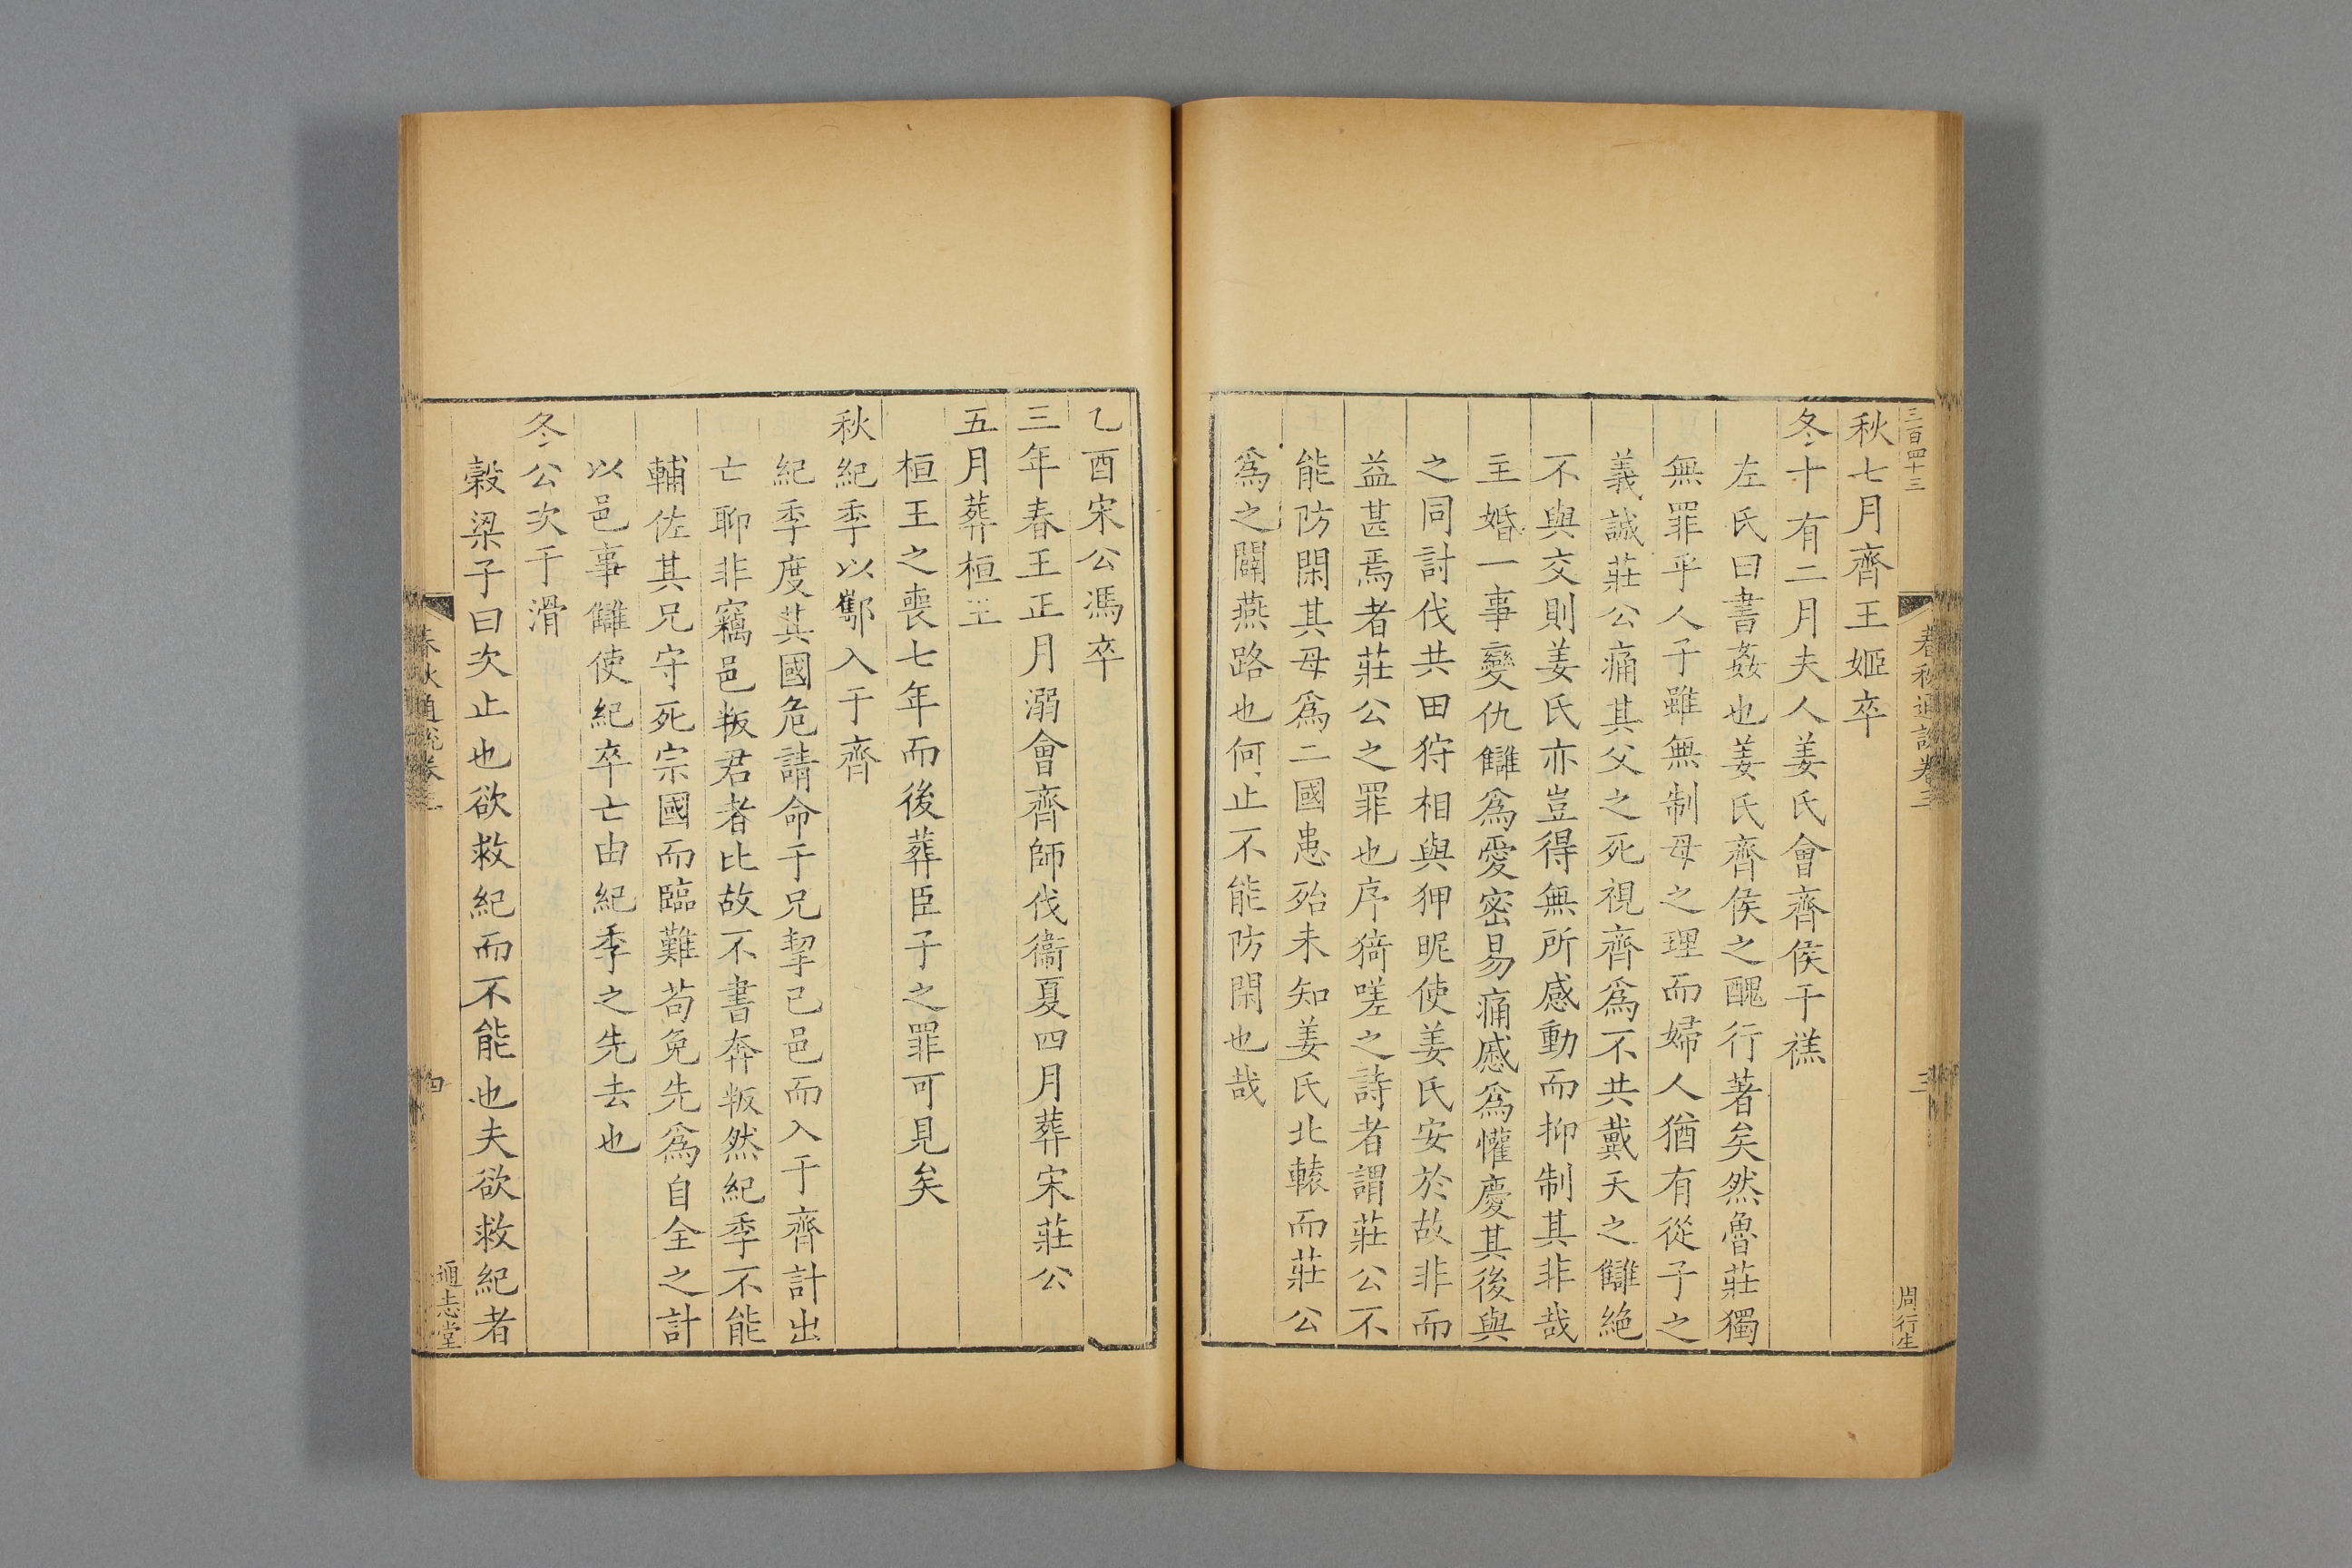 三百四十三
春秋通說卷三
三
周行生
秋七月齊王姬卒
冬十有二月夫人姜氏會齊侯于禚
左氏曰書姦也姜氏齊侯之醜行著矣然魯莊獨
無罪乎人子雖無制母之理而婦人猶有從子之
義誠莊公痛其父之死視齊為不共戴天之讎絶
不與交則姜氏亦豈得無所感動而抑制其非哉
主婚一事變仇讎為愛密易痛慼為懽慶其後與
之同討伐共田狩相與狎昵使姜氏安於故非而
益甚焉者莊公之罪也序猗嗟之詩者謂莊公不
能防閑其母為二國患殆未知姜氏北轅而莊公
為之闢燕路也何止不能防閑也哉
乙酉宋公馮卒
三年春王正月溺會齊師伐衞夏四月葬宋莊公
五月葬桓王
桓王之喪七年而後葬臣子之罪可見矣
秋紀季以酅入于齊
紀季度其國危請命于兄挈己邑而入于齊計出
亡聊非竊邑叛君者比故不書奔叛然紀季不能
輔佐其兄守死宗國而臨難苟免先為自全之計
以邑事讎使紀卒亡由紀季之先去也
冬公次于滑
榖梁子曰次止也欲救紀而不能也夫欲救紀者
春秋通說卷三
四
通志堂